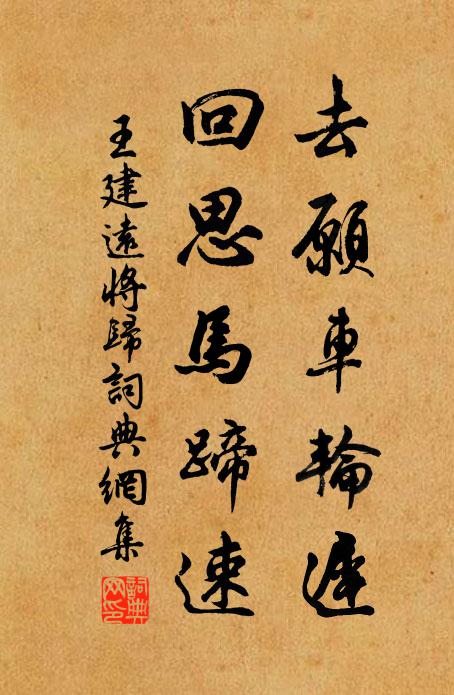 去願車輪遲
回思馬蹄速
王建遠將歸詞典網集
詞典网印